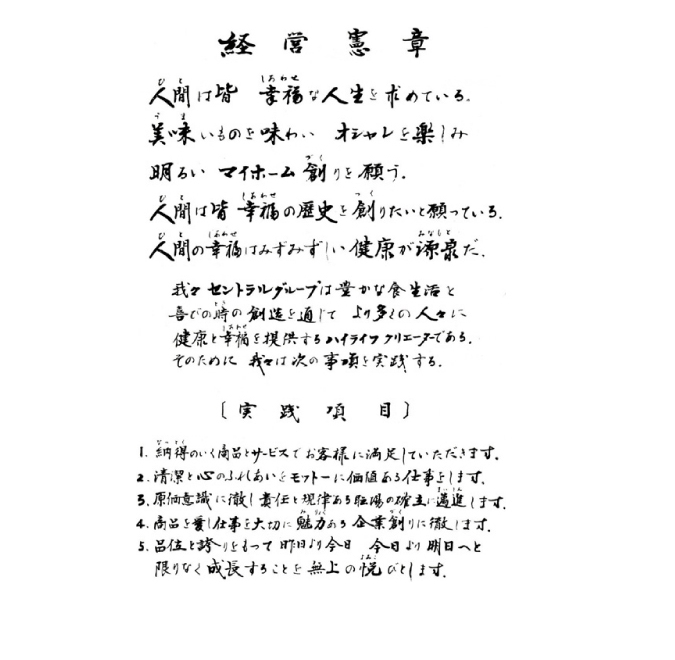 経営憲章
人間は皆 幸福な人生を求めている。
美味いものを味わい オシャレを楽しみ
明るい マイホーム創りを願う。
人間は皆 幸福の歴史を創りたいと願っている。
人間の幸福はみずみずしい健康が源泉だ。
我々セントラルグループは豊かな食生活と
喜びの時の創造を通じて より多くの人々に
健康と幸福を提供するハイライフクリエーターである。
そのために 我々は次の事項を実践する。
〔実践項目〕
1. 納得のいく商品とサービスでお客様に満足していただきます。
2. 清潔と心のふれあいをモットーに価値ある仕事をします。
3. 原価意識に徹し責任と規律ある職場の確立に邁進します。
4. 商品を愛し仕事を大切に魅力ある企業創りに徹します。
5. 品位と誇りをもって昨日より今日 今日より明日へと
限りなく成長することを無上の悦びとします。